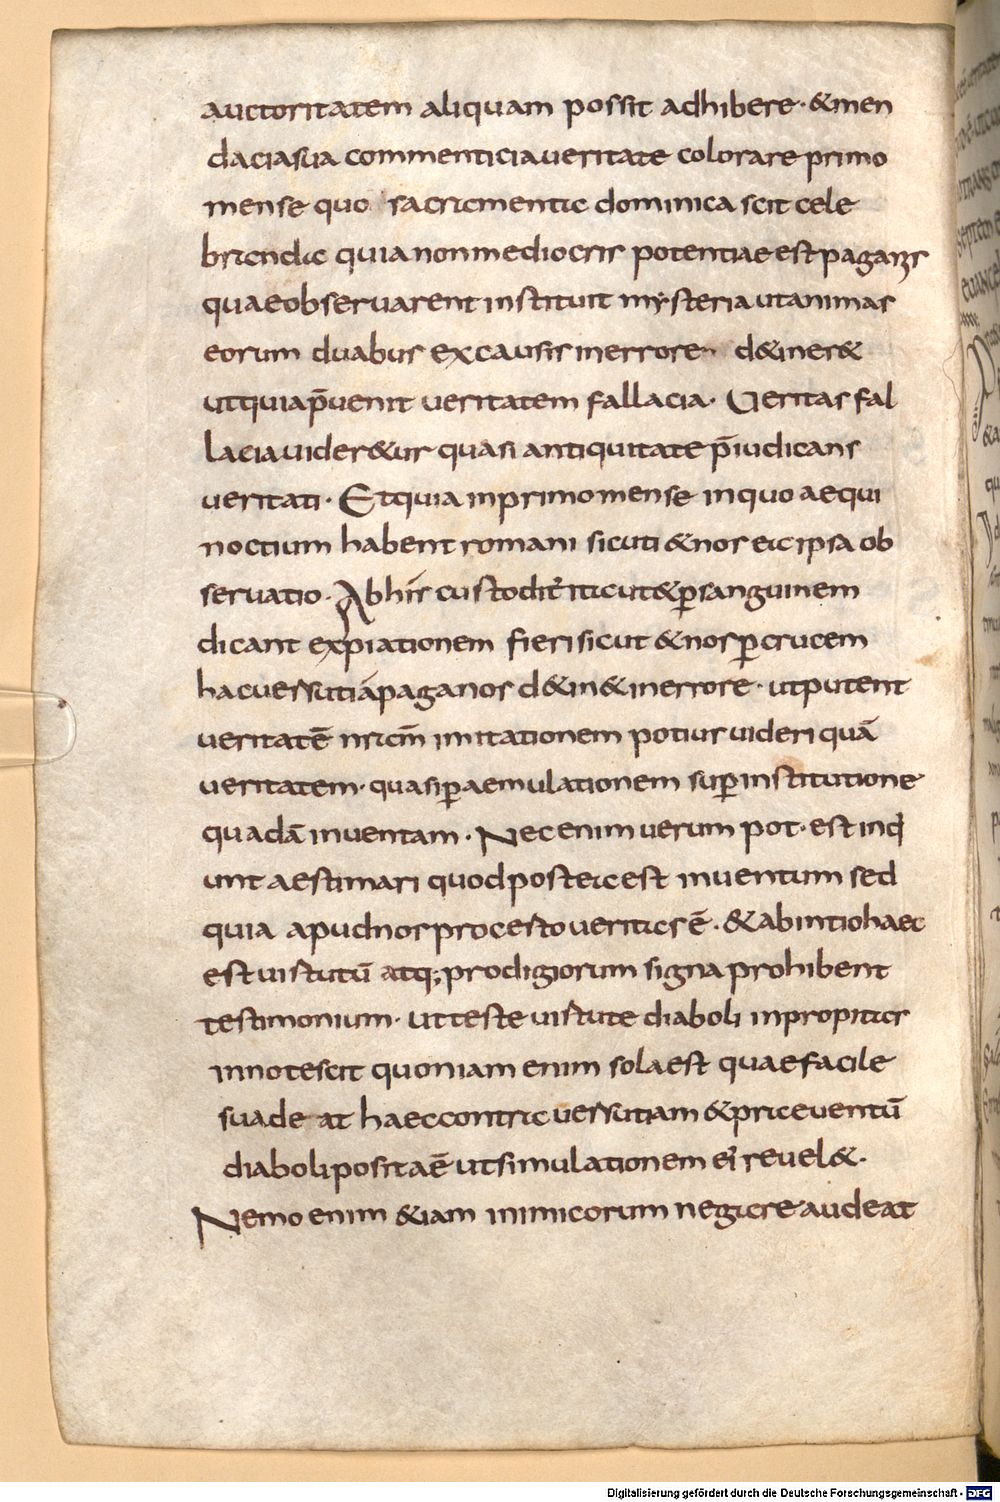 auctoritatem aliquam possit adhibere · & men
dacia sua commenticia ueritate colorare primo
mense quo sacramenta dominica scit cele
branda quia non mediocris potentiae est paganis
quae obseruarent instituit mysteria ut animas
eorum duabus ex causis in errore d&iner&
ut quia p̄uenit ueritatem fallacia · Ueritas fal
lacia uider&ur quasi antiquitate p̄iudicans
ueritati · Et quia in primo mense in quo aequi
noctium habent romani sicuti & nos ea ipsa ob
seruatio · Ab his custodit̃ ita ut & ꝑ sanguinem
dicant expiationem fieri sicut & nos ꝑ crucem
hac uersutia paganos d&in& in errore · ut putent
ueritatē nr̄am imitationem potius uideri quā
ueritatem · quasi ꝑ aemulationem suꝑinstitutione
quadā inuentam · Nec enim uerum pot · est inq̄
unt aestimari quod postea est inuentum sed
quia apud nos pro certo ueritas ē · & ab intio haec
est uirtutū atq; prodigiorum signa prohibent
testimonium · ut teste uirtute diaboli inpropitas
innotescat quoniam enim sola est quae facile
suadeat haec contra uersutiam & praeuentū
diaboli posita ē ut simulationem ei reuel& ·
Nemo enim &iam inimicorum negare audeat
Digitalisierung gefördert durch die Deutsche Forschungsgemeinschaft - DFG